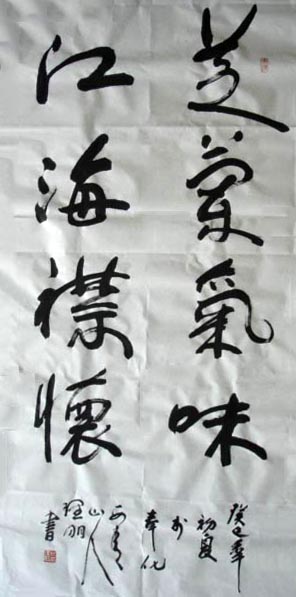 芝蘭氣味
江海襟懷
癸巳年
初夏
於
奉化
山人
書